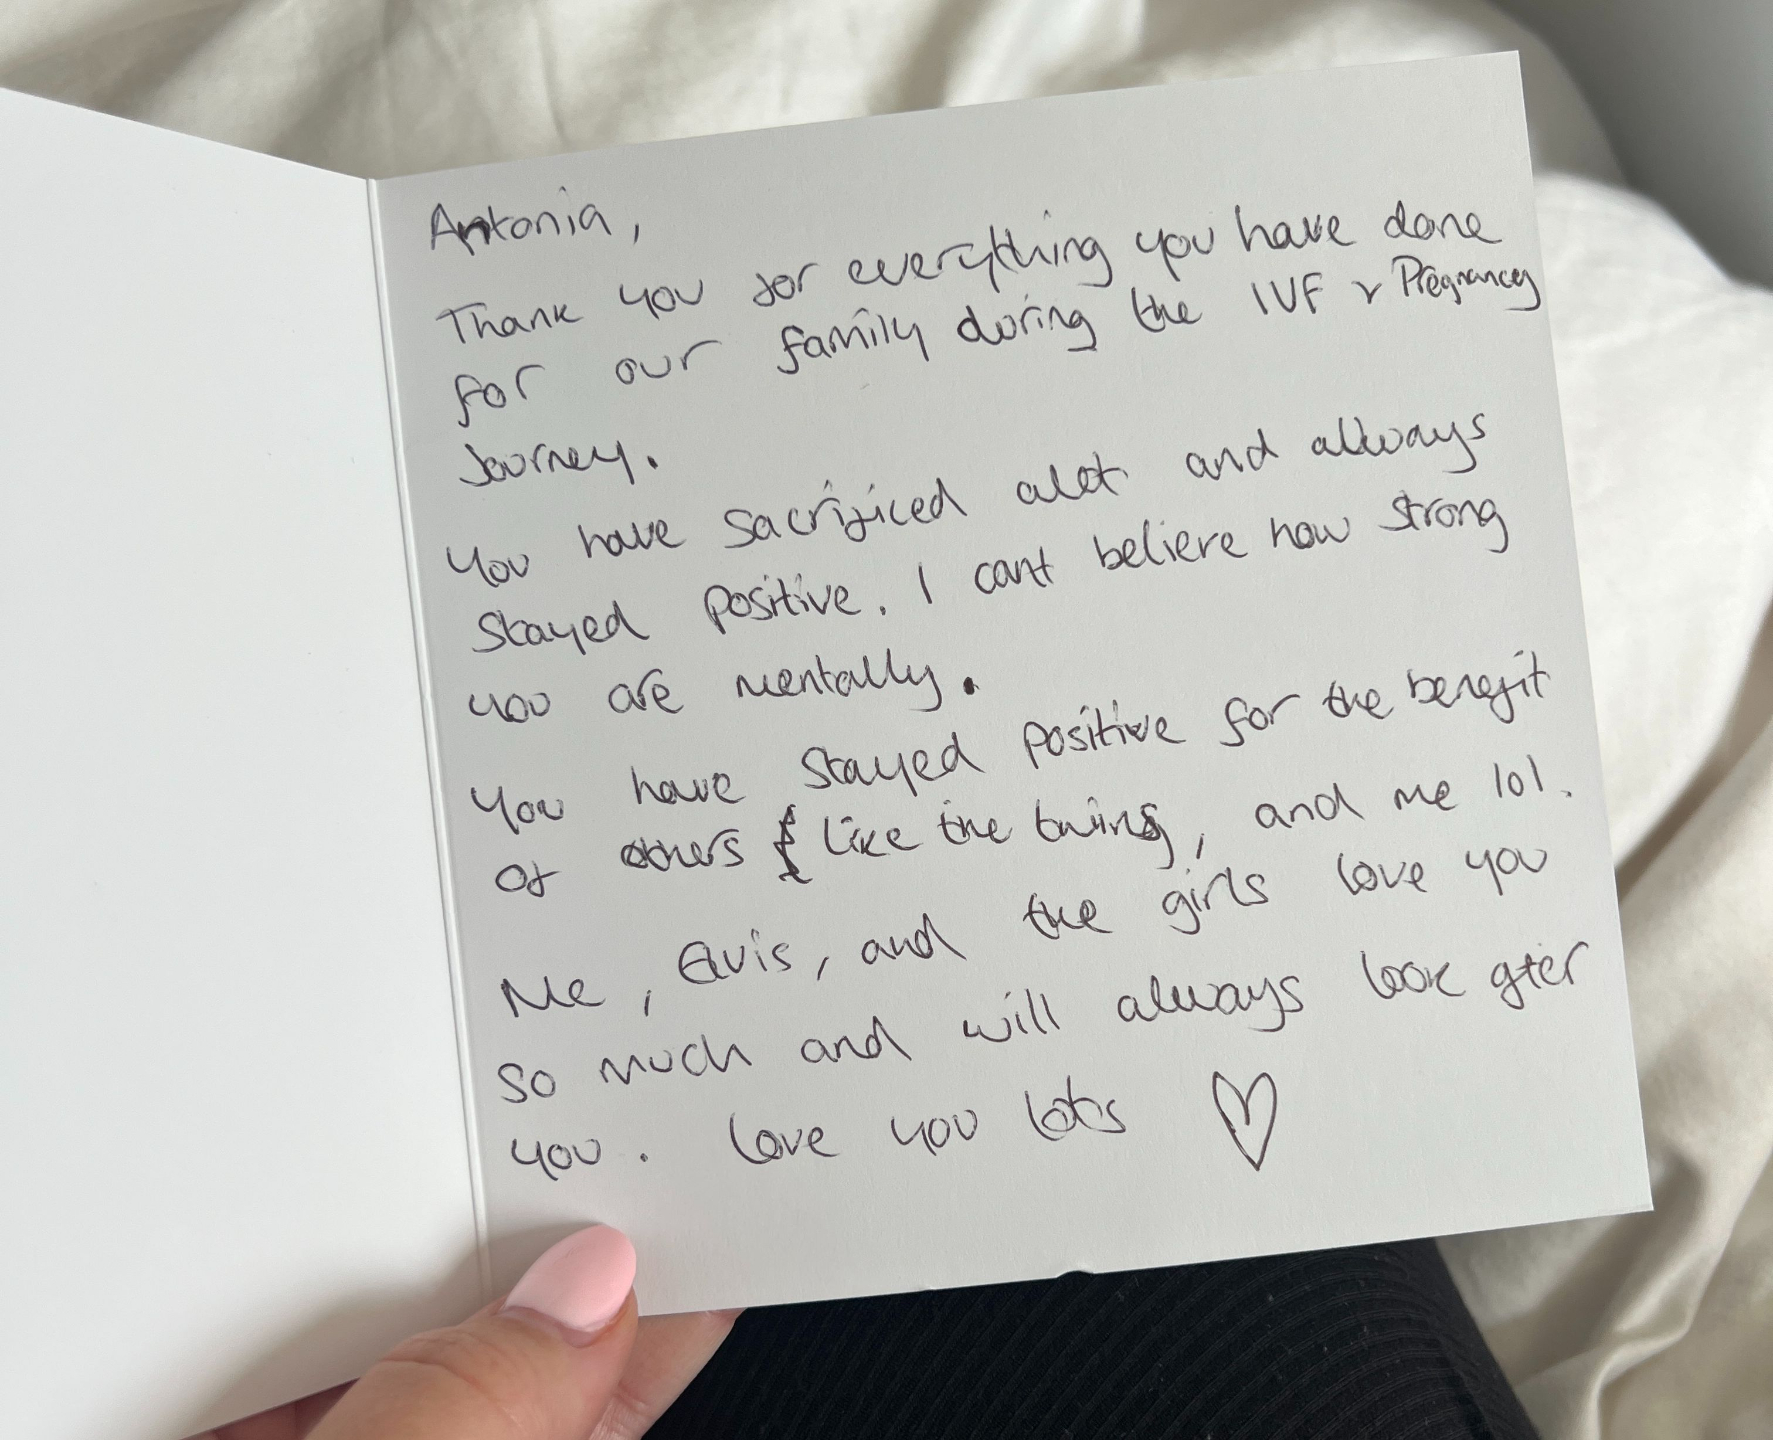 Antonia,
Thank you for everything you have done
for our family during the IVF & Pregnancy
Journey.
You have sacrificed alot and always
stayed positive. I cant believe how strong
you are mentally.
You have stayed positive for the benefit
of others like the twins, and me lol.
Me, Elvis, and the girls love you
so much and will always look after
you. Love you lots ♡